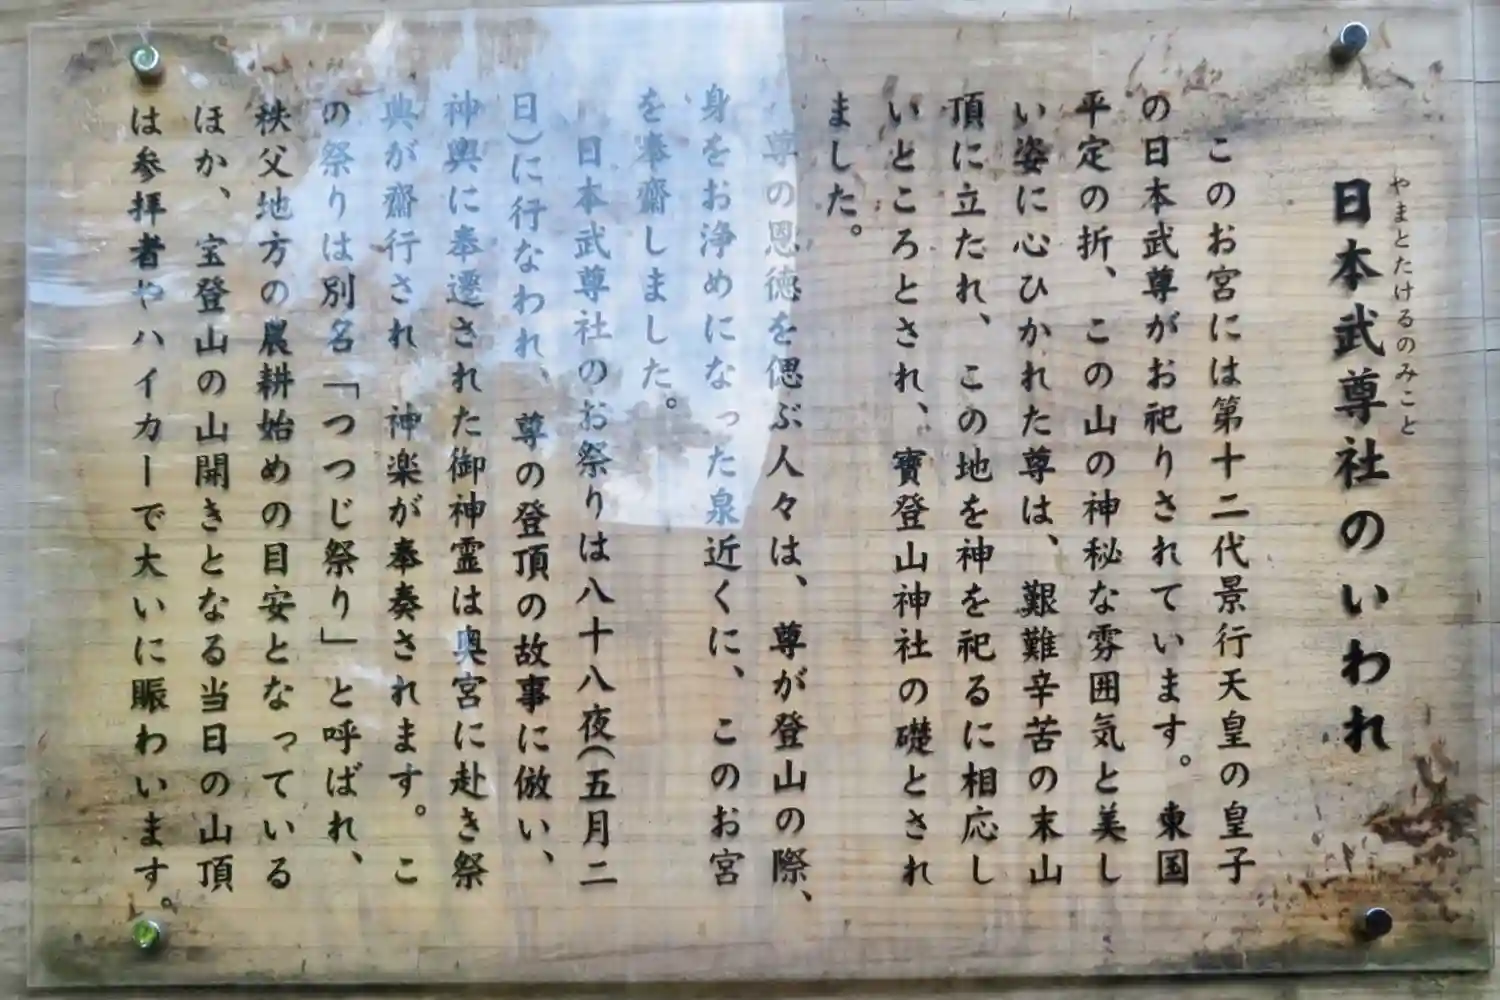 やまとたけるのみこと
日本武尊社のいわれ
このお宮には第十二代景行天皇の皇子
の日本武尊がお祀りされています。東国
平定の折、この山の神秘な雰囲気と美し
い姿に心ひかれた尊は、艱難辛苦の末山
頂に立たれ、この地を神を祀るに相応し
いところとされ、寶登山神社の礎とされ
ました。
尊の恩徳を偲ぶ人々は、尊が登山の際、
身をお浄めになった泉近くに、このお宮
を奉齋しました。
日本武尊社のお祭りは八十八夜(五月二
日)に行なわれ、尊の登頂の故事に倣い、
神輿に奉遷された御神霊は奥宮に赴き祭
典が齋行され、神楽が奉奏されます。こ
の祭りは別名「つつじ祭り」と呼ばれ、
秩父地方の農耕始めの目安となっている
ほか、宝登山の山開きとなる当日の山頂
は参拝者やハイカーで大いに賑わいます。